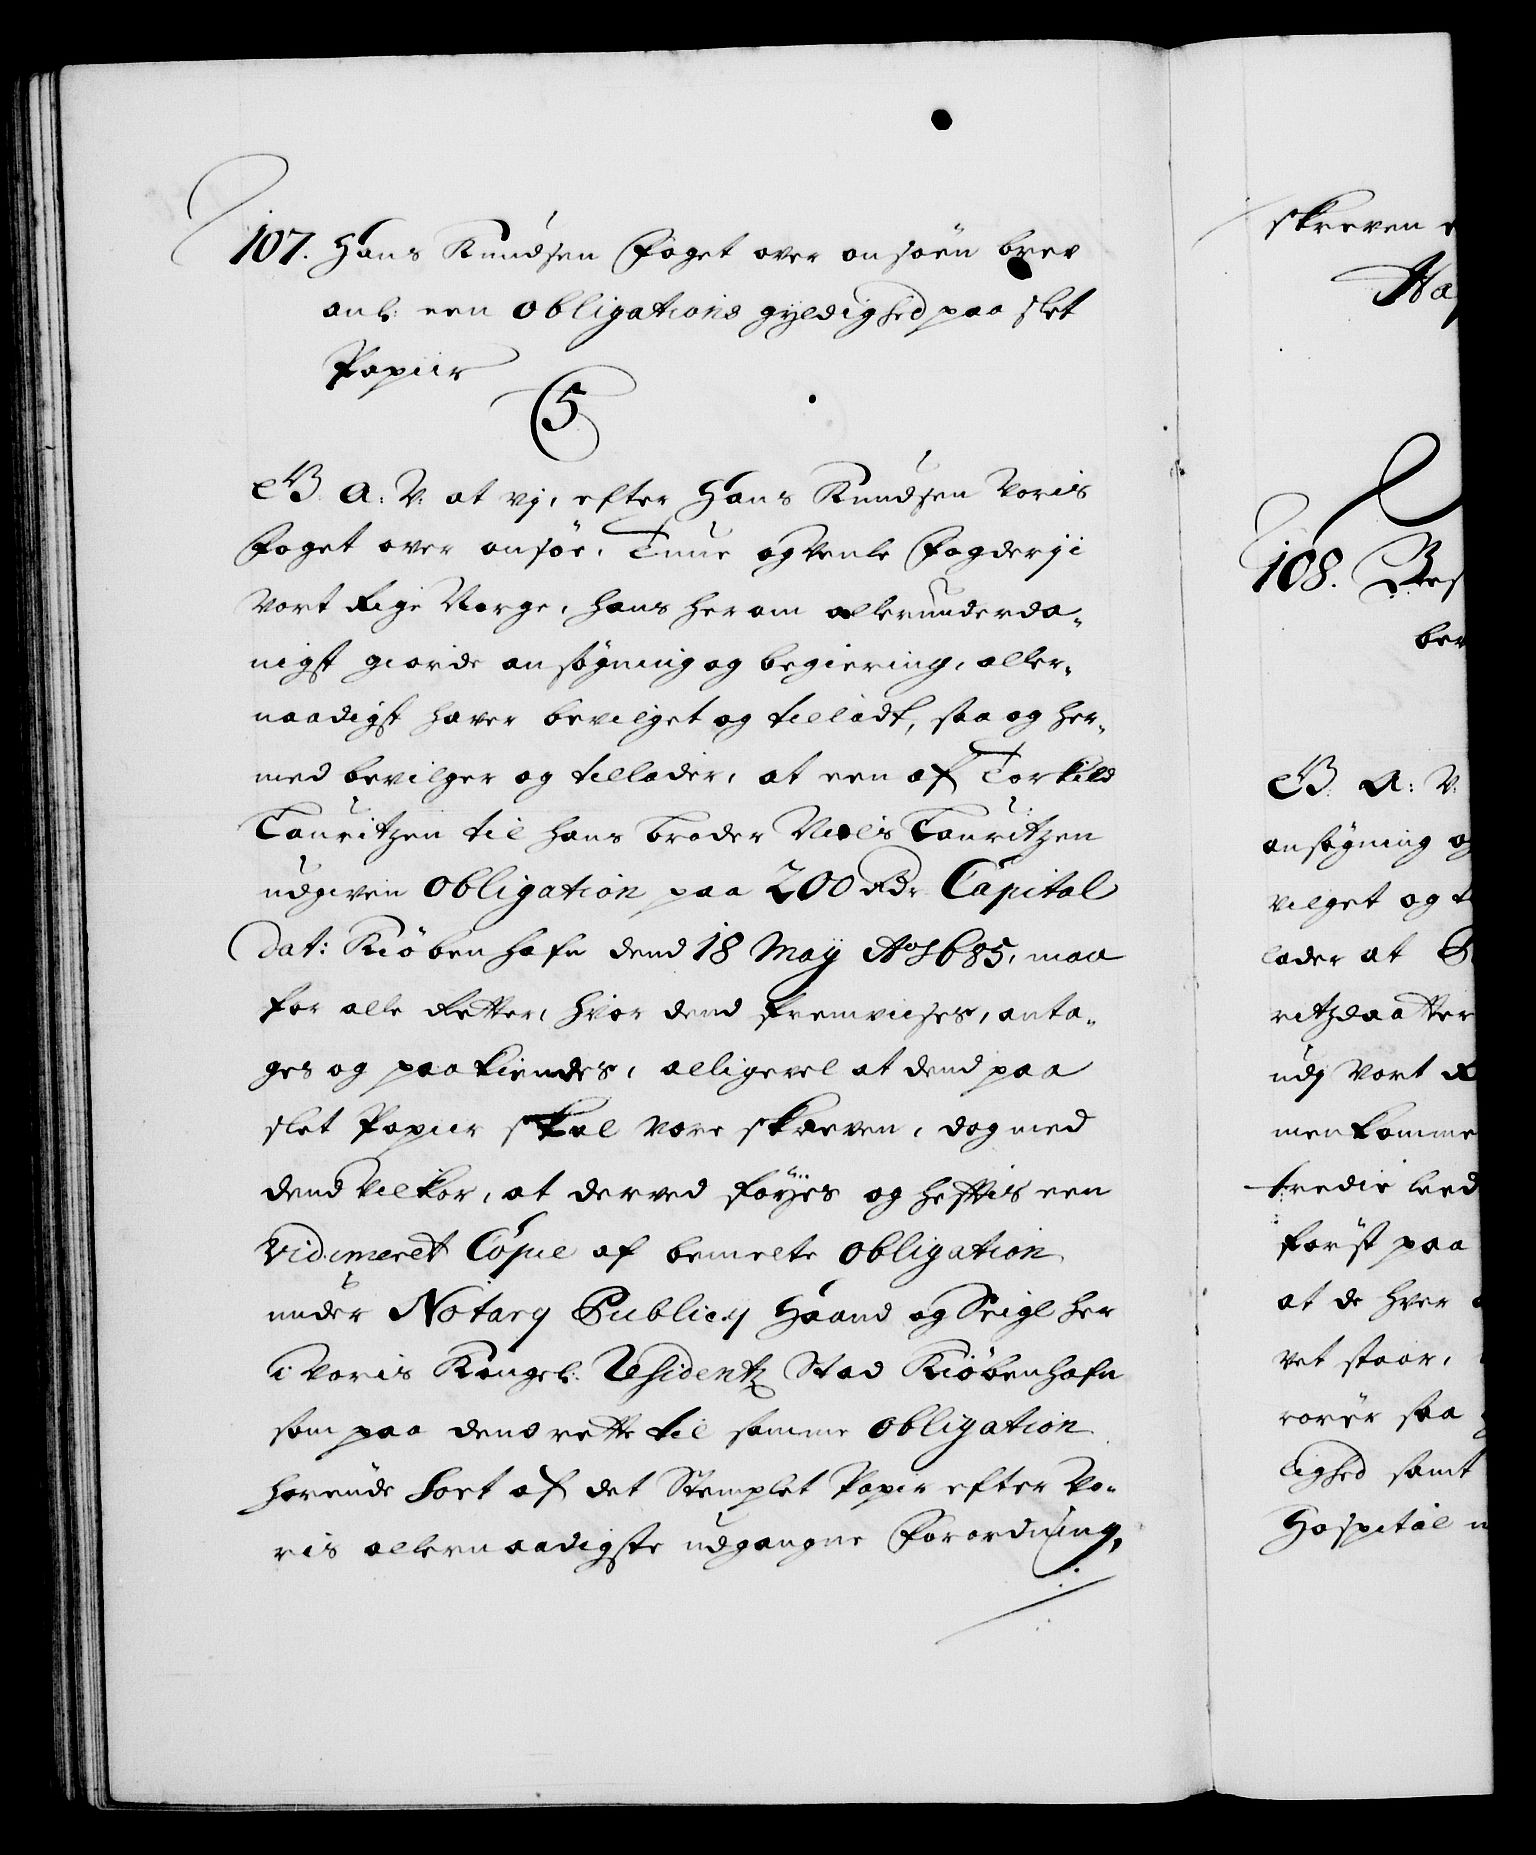 107. Hans Knudsen Foget over onsöen brev
anl: een Obligations gyldighed paa slet
Papiir
5
G. A: V: at vj, efter Hans Knudsen Voris
Foget over onsöe, Tune og Venle Fogderje
vort Rige Norge, hans herom allerunderda„
nigst giorde ansögning og begiering, aller„
naadigst haver bevilget og tilladt, saa og her„
med bevilger og tillader, at een af Torkild
Lauritzen til hans broder Niels Lauritzen
udgiven Obligation paa 200 Rdr Capital
dat: Kiöbenhafn dend 18 Maij Ao 1685, maa
for alle Retter, hvor dend fremviises, anta„
ges og paakiendes, alligevel at dend paa
slet Papiir skal være skreven, dog med
dend vilkor, at derved föyes og hefftis een
Vidimeret Copie af bemelte Obligation
under Notarij Publicij Haand og Seigl her
i Voris Kongel: Residentz Stad Kiöbenhafn
som paa dend rette til samme Obligation
hörende Sort af det Stemplet Papir efter Vo„
ris allernaadigste udgangne Forordning,
skreven
108.
ber
G. A: V:
ansögning og
vilget og
lader at
ritzdaatter
udj Vort R
menkomme
tredie leed
först paa
at de hver
vet staar,
rörer saa
lighed samt
Hospital